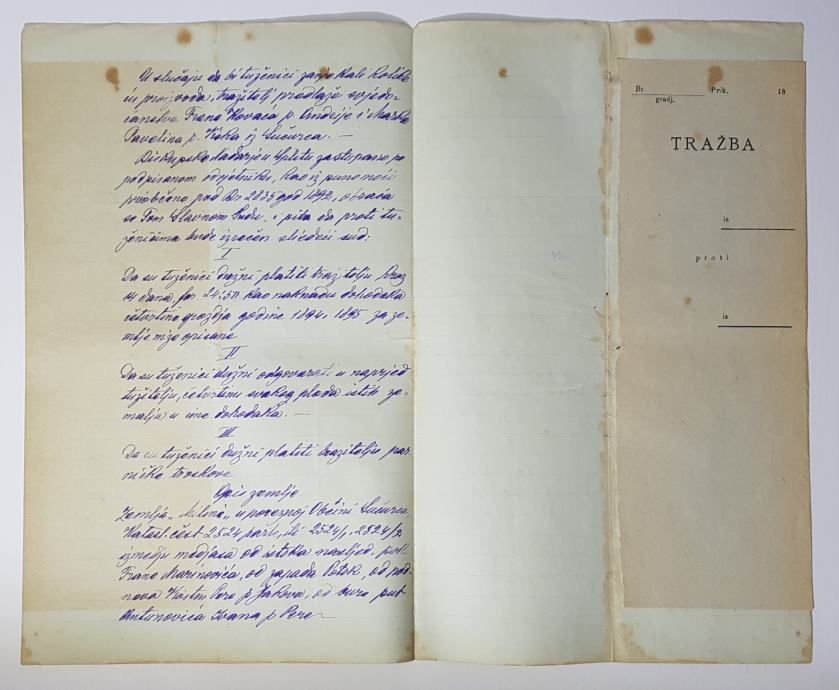 U slučaju da bi tuženici zanjekali količi-
nu proizvoda, tražitelj predlaže svjedo-
čanstvo Frana Kovača p. Andrije i Marka
Pavolina p. Vicka iz Sućurca. —
Biskupsko Nadarje u Splitu zastupano po
podpisanom odvjetniku, kao iz punomoći
priobćene pod Br. 2835 god 1892, obraća
se Tom Slavnom Sudu, i pita da proti tu-
ženicima bude izrečen sliedeći sud:
I
Da su tuženici dužni platiti tražitelju kroz
14 dana, for 24:50 kao naknadu dohodaka
četvrtine grozdja godine 1894 i 1895 za ze-
mlje niže opisane
II
Da su tuženici dužni odgovarati u naprijed
tužitelju, četvrtinu svakog ploda istih ze-
malja u ime dohodaka. —
III
Da su tuženici dužni platiti tražitelju par-
ničke troškove
Opis zemlje
Zemlja „Milina" u poreznoj Obćini Sućurca,
Katast. čest 2524 parte, ili 2524/1, 2524/2
izmedju medjaša od istoka nasljed. pok.
Frane Marinovića, od zapada Potok, od pod-
neva Kostin Pere p. Jakova, od bure put
Antunovića Ivana p. Pere
Br. Prik. 18
gradj.
TRAŽBA
iz
proti
iz